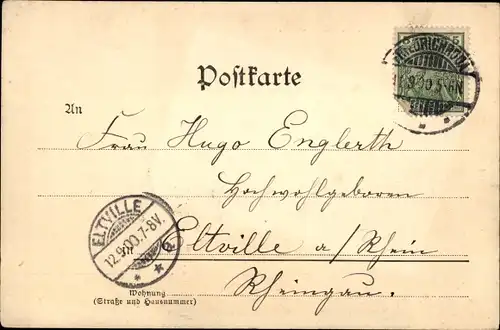 Postkarte
An
Frau Hugo Englerth
Hochwohlgeboren
in Eltville a/Rhein
Rheingau.
Wohnung
(Straße und Hausnummer)
ELTVILLE
12.9.00.7-8V.